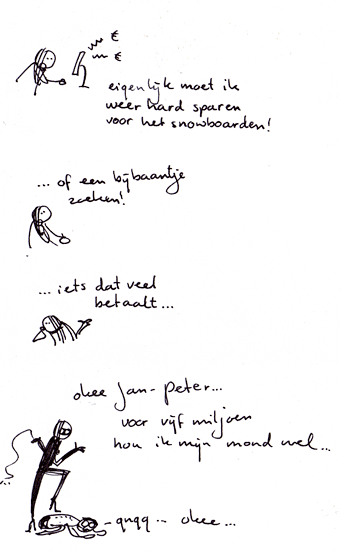 €
€
eigenlijk moet ik
weer hard sparen
voor het snowboarden!
... of een bijbaantje
zoeken!
... iets dat veel
betaalt...
okee Jan-Peter...
voor vijf miljoen
hou ik mijn mond wel...
-gnqq... okee...